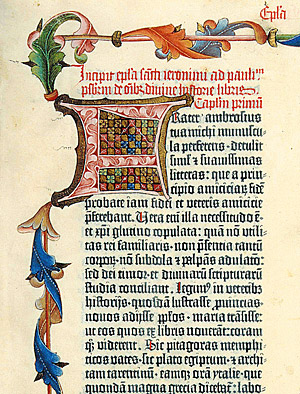 Epl̄a
Incipit epl̄a sancti ieronimi ad paulinū
p̄sbiterū de oīnibꝫ divine historie libris.
Caplm̄ primū.
Frater ambrosius
tua michi munuscula
perferens· detulit
sil̄ et suavissimas
litteras: que a prin-
cipio amiciciarꝫ fidē
probate iam fidei et veteris amicicie
p̄ferebant. Vera enī illa necessitudo ē·
et xp̄i glutino copulata: qm̄ non utili-
tas rei familiaris· nō presentia tantū
corporꝫ· nō subdola et palpās adulaco:
sed dei timor· et divinarū scripturarū
studia conciliant. Legimꝰ in veteribꝫ
historijs· quosdā lustrasse provincias·
novos adijsse pplōs· maria trāsisse:
ut eos quos ex libris noverant: coram qꝫ
viderēt. Sic pitagoras memphiticos
vates· sic plato egiptum· et archi-
tam tarentinum· eamqꝫ oram ytalie· que
quondā magna grecia dicebat̄: labo-